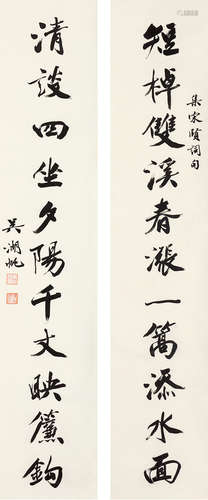 短棹雙溪春漲一篙添水面
集宋賢詞句
清談四坐夕陽千丈映簾鉤
吳湖帆